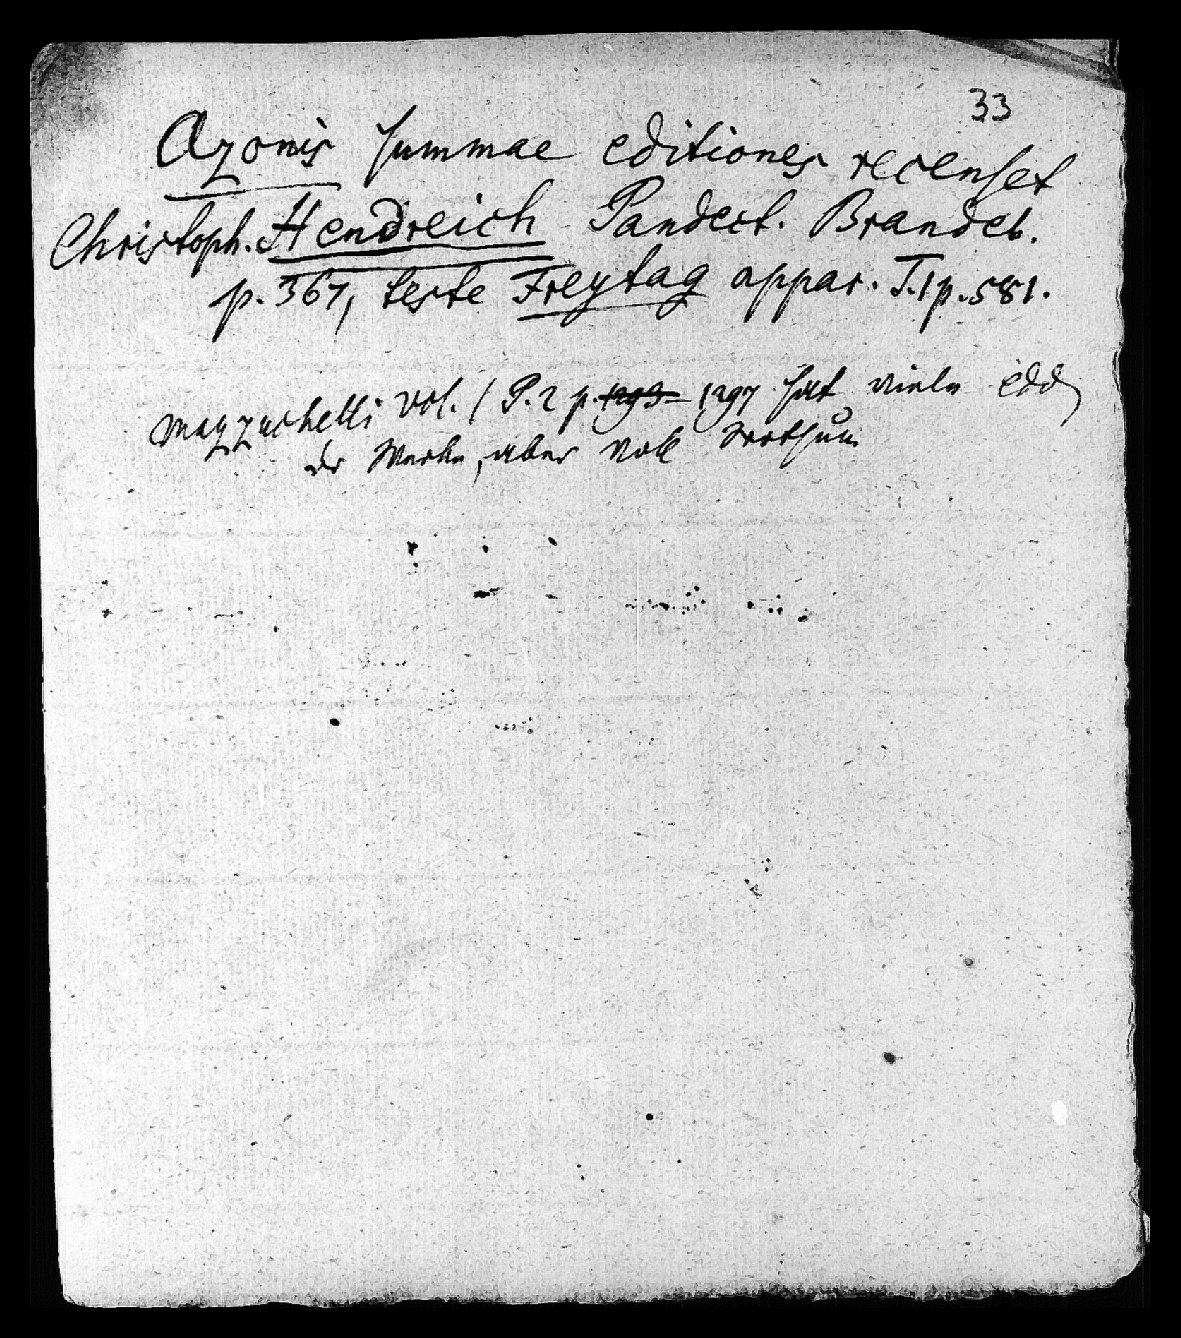 33
Azonis summae editiones recenset
Christoph. Hendreich Pandect. Brandeb.
p. 367, teste Freytag appar. T. 1 p. 581.
Mazzuchelli Vol. 1 P. 2 p. 1293 1297 hat viele edd
der Werke, aber voll Irrthum